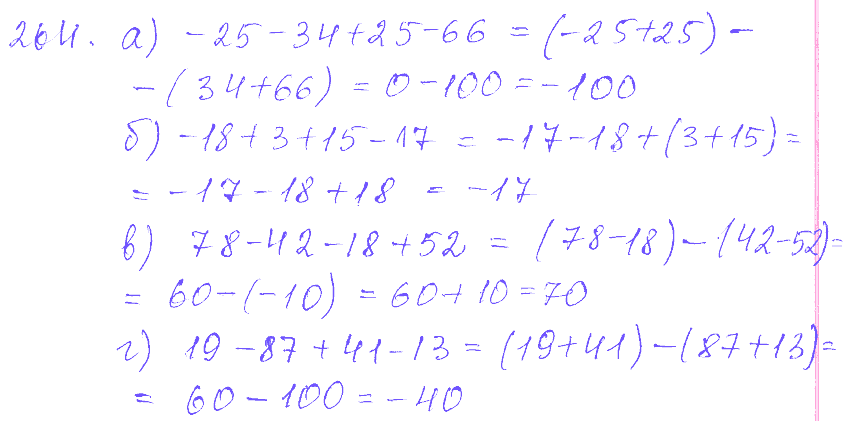 264. а) -25-34+25-66 = (-25+25) -
-(34+66) = 0-100 = -100
б) -18+3+15-17 = -17-18+(3+15) =
= -17-18+18 = -17
в) 78-42-18+52 = (78-18) - (42-52) =
= 60-(-10) = 60+10 = 70
г) 19-87+41-13 = (19+41) - (87+13) =
= 60-100 = -40